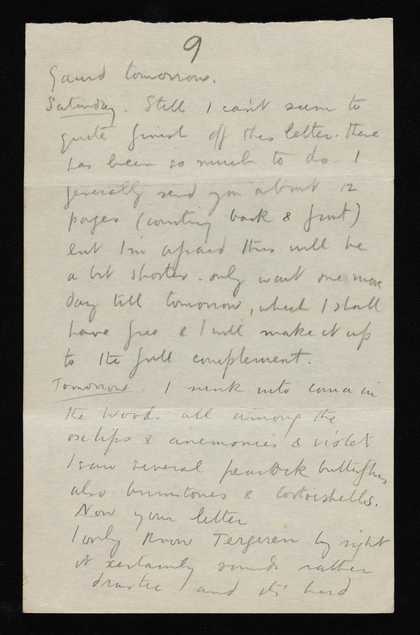 9
Gaurd tomorrow.
Saturday. Still I can't seem to
quite finish off this letter. There
has been so much to do. I
generally send you about 12
pages (counting back & front)
but I'm afraid this will be
a bit shorter. only wait one more
day till tomorrow, which I shall
have free & I will make it up
to the full complement.
Tomorrow. I sunk into coma in
the woods all among the
oxlips & anemonies & violets
I saw several peacock butterflies
also brimstones & tortoishells.
Now your letter
I only know by sight
it certainly sounds rather
drastic and its hard